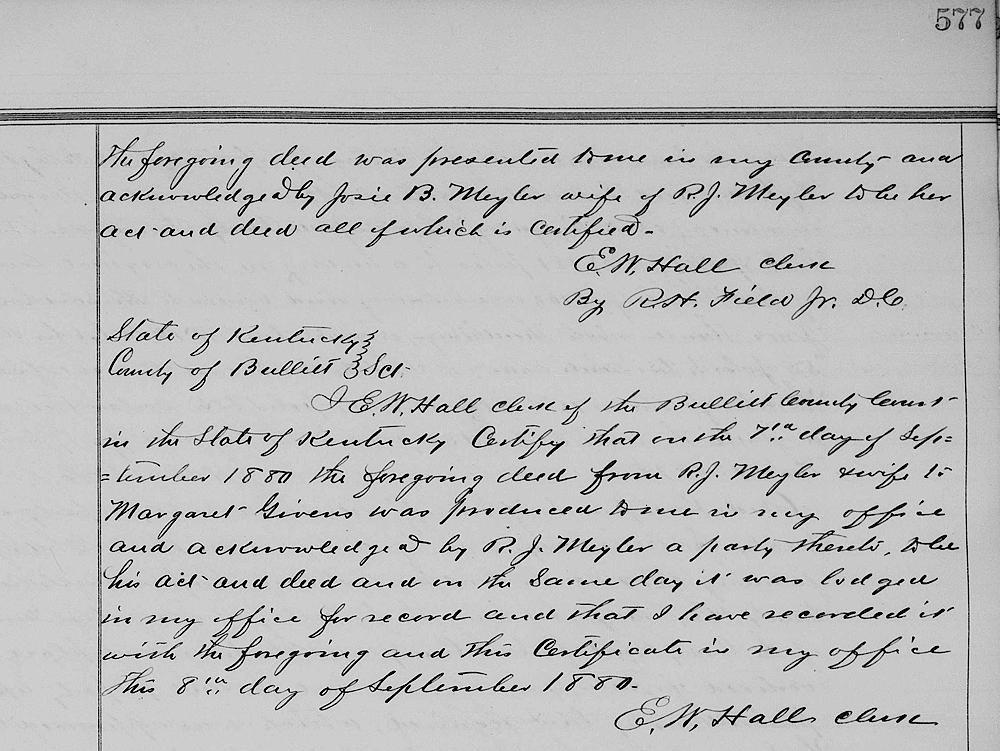 577
The foregoing deed was presented to me in my County and
acknowledged by Josie B. Meyler wife of R. J. Meyler to be her
act and deed all of which is certified.
E. W. Hall clerk
By R. H. Field Jr. D. C.
State of Kentucky }
County of Bullitt } Sct.
I E. W. Hall clerk of the Bullitt County Court
in the State of Kentucky Certify that on the 7th day of Sep=
=tember 1880 the foregoing deed from R. J. Meyler & wife to
Margaret Givens was produced to me in my office
and acknowledged by R. J. Meyler a party thereto, to be
his act and deed and on the same day it was lodged
in my office for record and that I have recorded it
with the foregoing and this Certificate in my office
This 8th day of September 1880.
E. W. Hall clerk